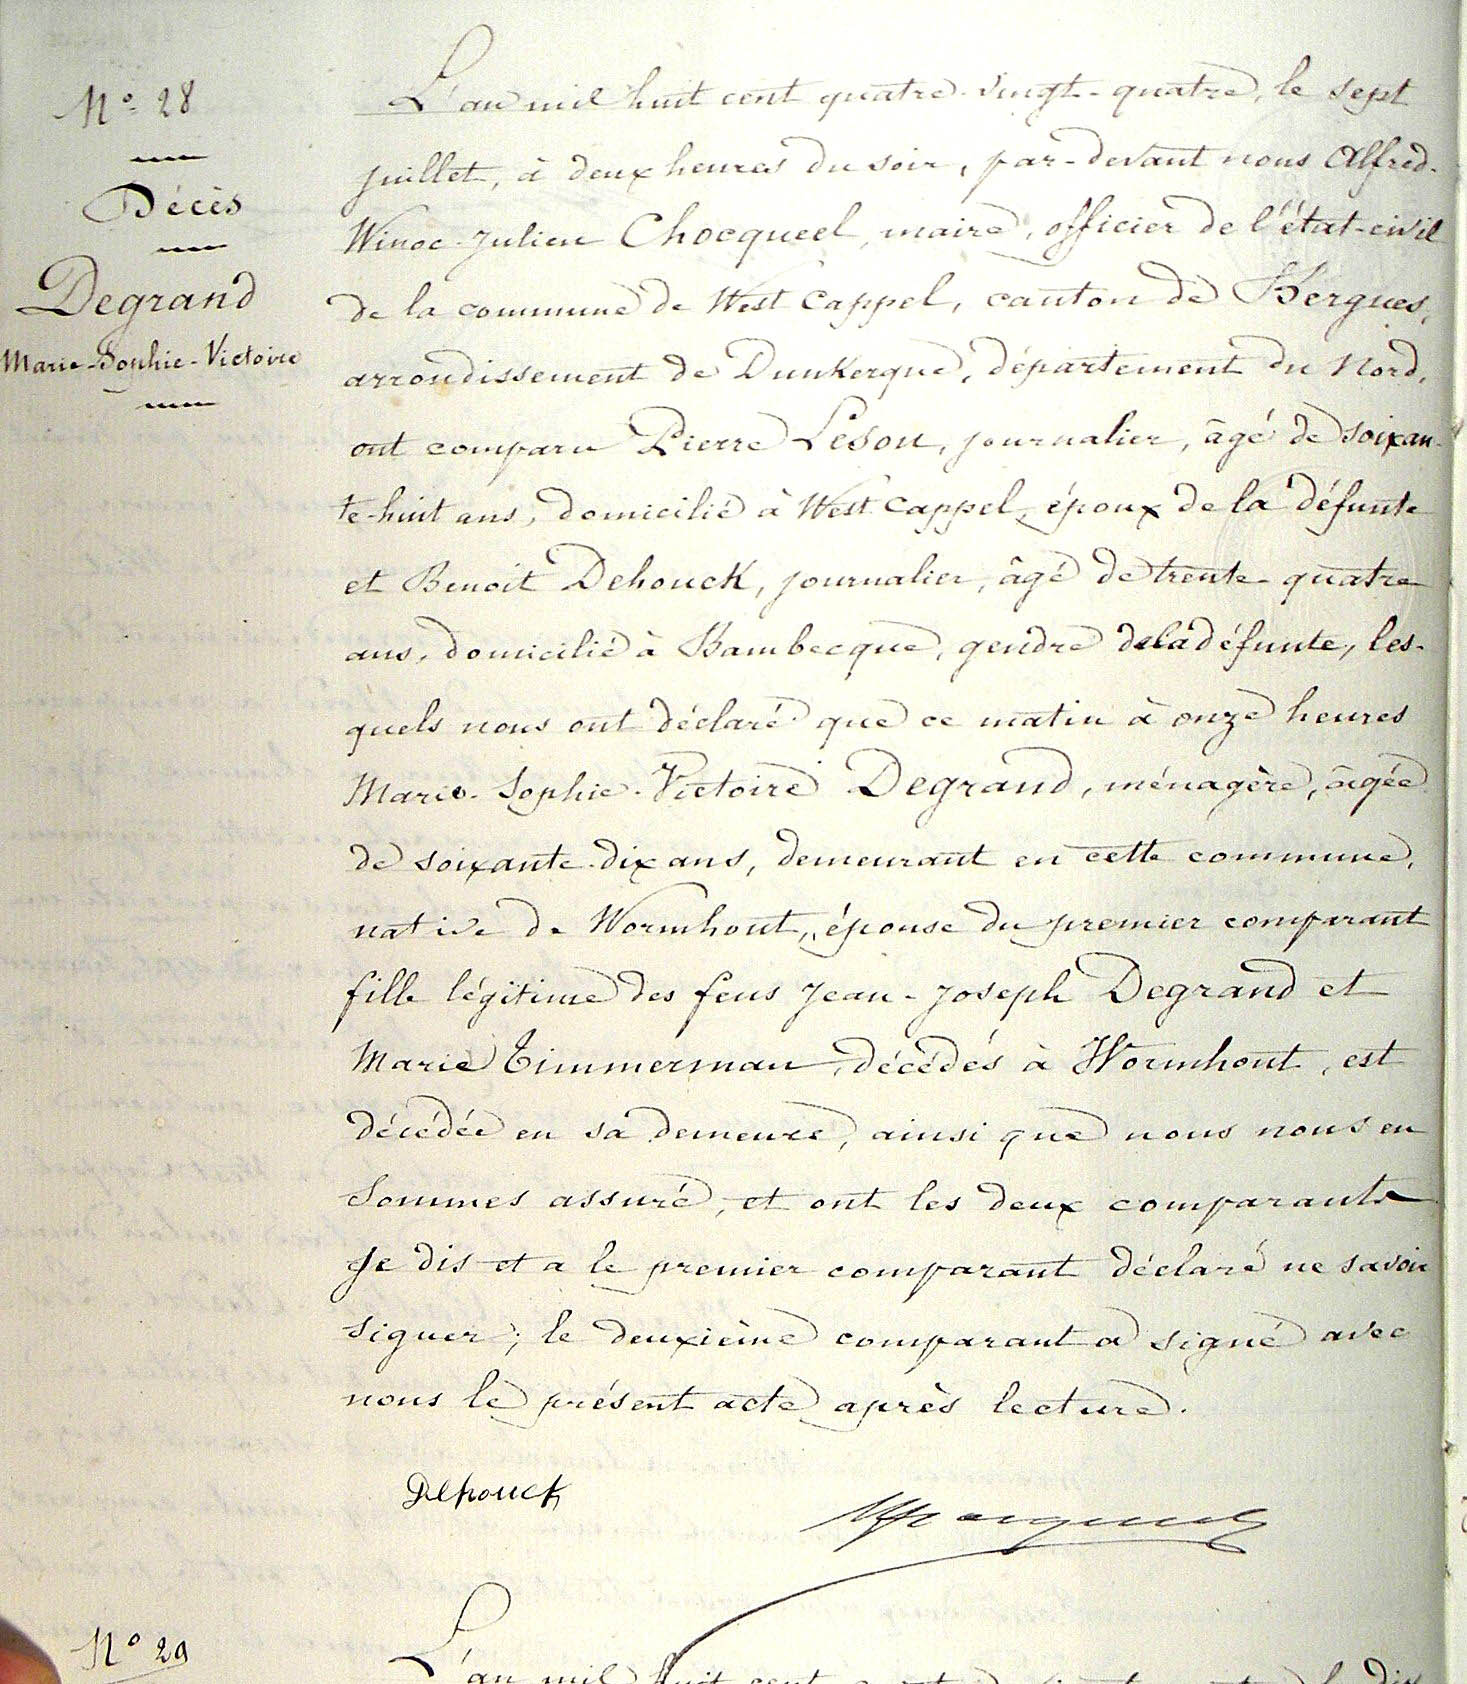 N° 28
Décès
Degrand
Marie-Sophie-Victoire
L'an mil huit cent quatre-vingt-quatre, le sept
juillet, à deux heures du soir, par-devant nous Alfred-
Winoc-Julien Chocqueel, maire, officier de l'état-civil
de la commune de West Cappel, canton de Bergues,
arrondissement de Dunkerque, département du Nord,
ont comparu Pierre Leson, journalier, âgé de soixan-
te-huit ans, domicilié à West Cappel, époux de la défunte
et Benoit Dehouck, journalier, âgé de trente-quatre
ans, domicilié à Bambecque, gendre de la défunte, les-
quels nous ont déclaré que ce matin à onze heures
Marie-Sophie-Victoire Degrand, ménagère, âgée
de soixante-dix ans, demeurant en cette commune,
native de Wormhout, épouse du premier comparant
fille légitime des feus Jean-Joseph Degrand et
Marie Timmerman, décédés à Wormhout, est
décédée en sa demeure, ainsi que nous nous en
sommes assuré, et ont les deux comparants
je dis et a le premier comparant déclaré ne savoir
signer; le deuxième comparant a signé avec
nous le présent acte après lecture.
Dehouck
N° 29
L'an mil huit cent